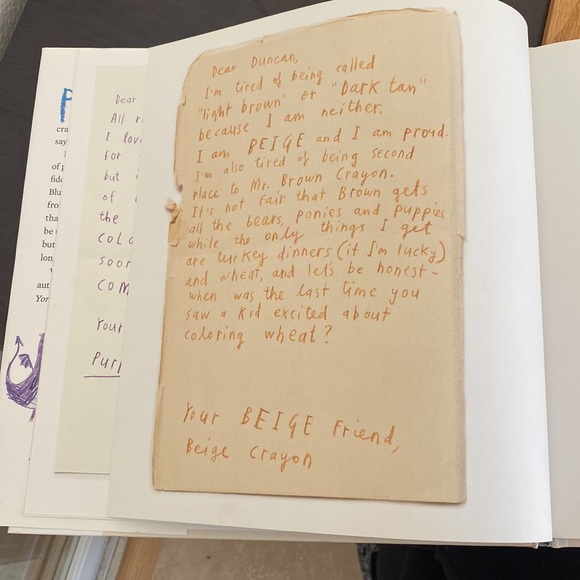 P
cra
say
of p
fide
Blu
tha
be
but
lon
aut
Yor
Dear
All
I lov
for
but i
of
the
COLO
COM
Your
Purp
Dear Duncan,
I'm tired of being called
"light brown" or "Dark tan"
because I am neither.
I am BEIGE and I am proud.
I'm also tired of being second
place to Mr. Brown Crayon.
It's not fair that Brown gets
all the bears, ponies and puppies
while the only things I get
are turkey dinners (if I'm lucky)
and wheat, and let's be honest-
when was the last time you
saw a kid excited about
coloring wheat?
Your BEIGE friend,
Beige Crayon